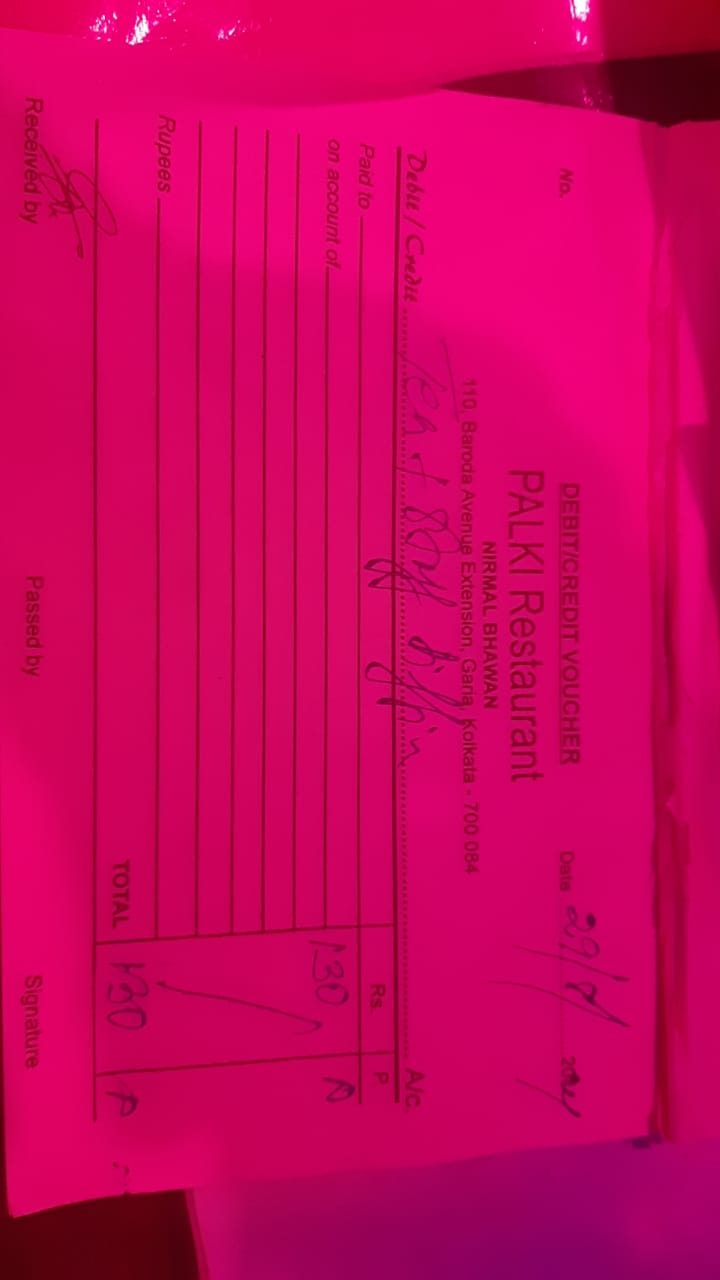 No.
DEBIT/CREDIT VOUCHER
Date 29/ 20
PALKI Restaurant
NIRMAL BHAWAN
110, Baroda Avenue Extension, Garia, Kolkata - 700 084
Debit / Credit Staff tiffin A/c.
Rs. P
Paid to
on account of 130
Rupees
TOTAL 130
Received by Passed by Signature